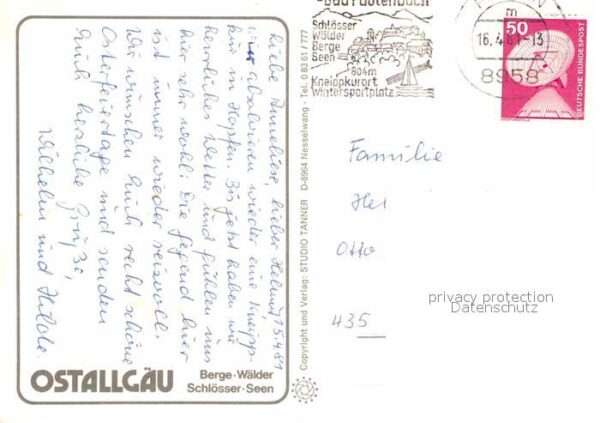 15.4.81
Liebe Anneliese, lieber Helmut,
wir absolvieren wieder eine Kneipp-
kur in Hopfen. Bis jetzt haben wir
herrliches Wetter und fühlen uns
hier sehr wohl. Die Gegend hier
ist immer wieder reizvoll.
Wir wünschen Euch recht schöne
Osterfeiertage und senden
Euch herzliche Grüße,
Wilhelm und Hilde.
OSTALLGÄU
Berge · Wälder
Schlösser · Seen
Copyright und Verlag: STUDIO TANNER D-8964 Nesselwang - Tel. 0 83 61 / 777
Schlösser
Wälder
Berge
Seen
804m
Kneippkurort
Wintersportplatz
m
16.4.81-13
8958
50
DEUTSCHE BUNDESPOST
Familie
Hel
Otto
435
privacy protection
Datenschutz